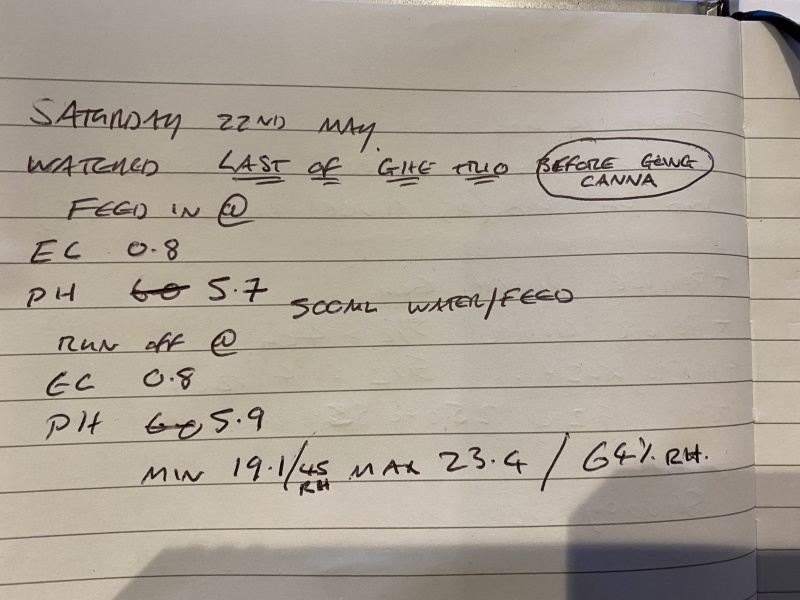 SATURDAY 22ND MAY.
WATCHED LAST OF GHE TRIO BEFORE GOING
CANNA
FEED IN @
EC 0.8
PH 6.0 5.7 500ML WATER/FEED
RUN OFF @
EC 0.8
PH 6.0 5.9
MIN 19.1/45 MAX 23.4 / 64% RH.
RH